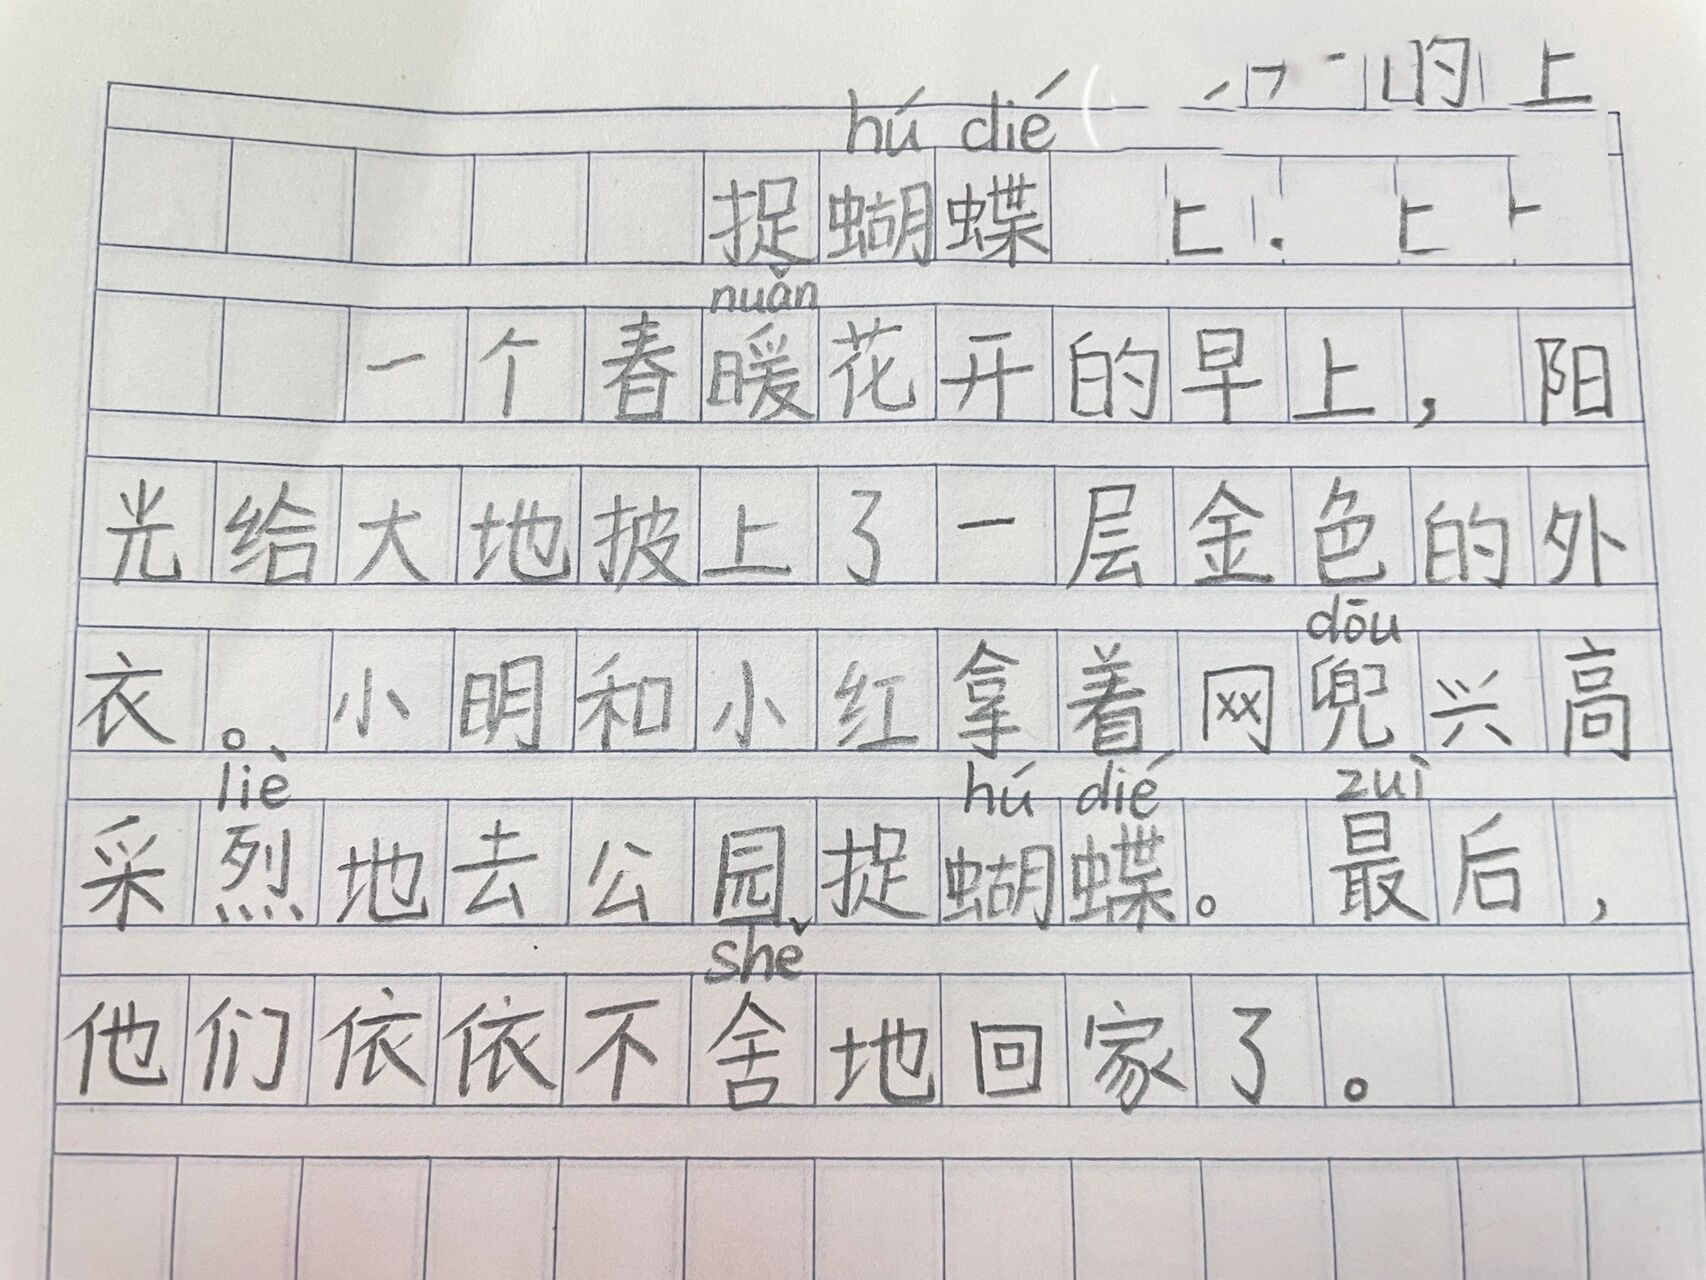 hú dié
捉蝴蝶
nuǎn
一个春暖花开的早上，阳
光给大地披上了一层金色的外
dōu
衣。小明和小红拿着网兜兴高
liè hú dié zuì
采烈地去公园捉蝴蝶。最后，
shě
他们依依不舍地回家了。